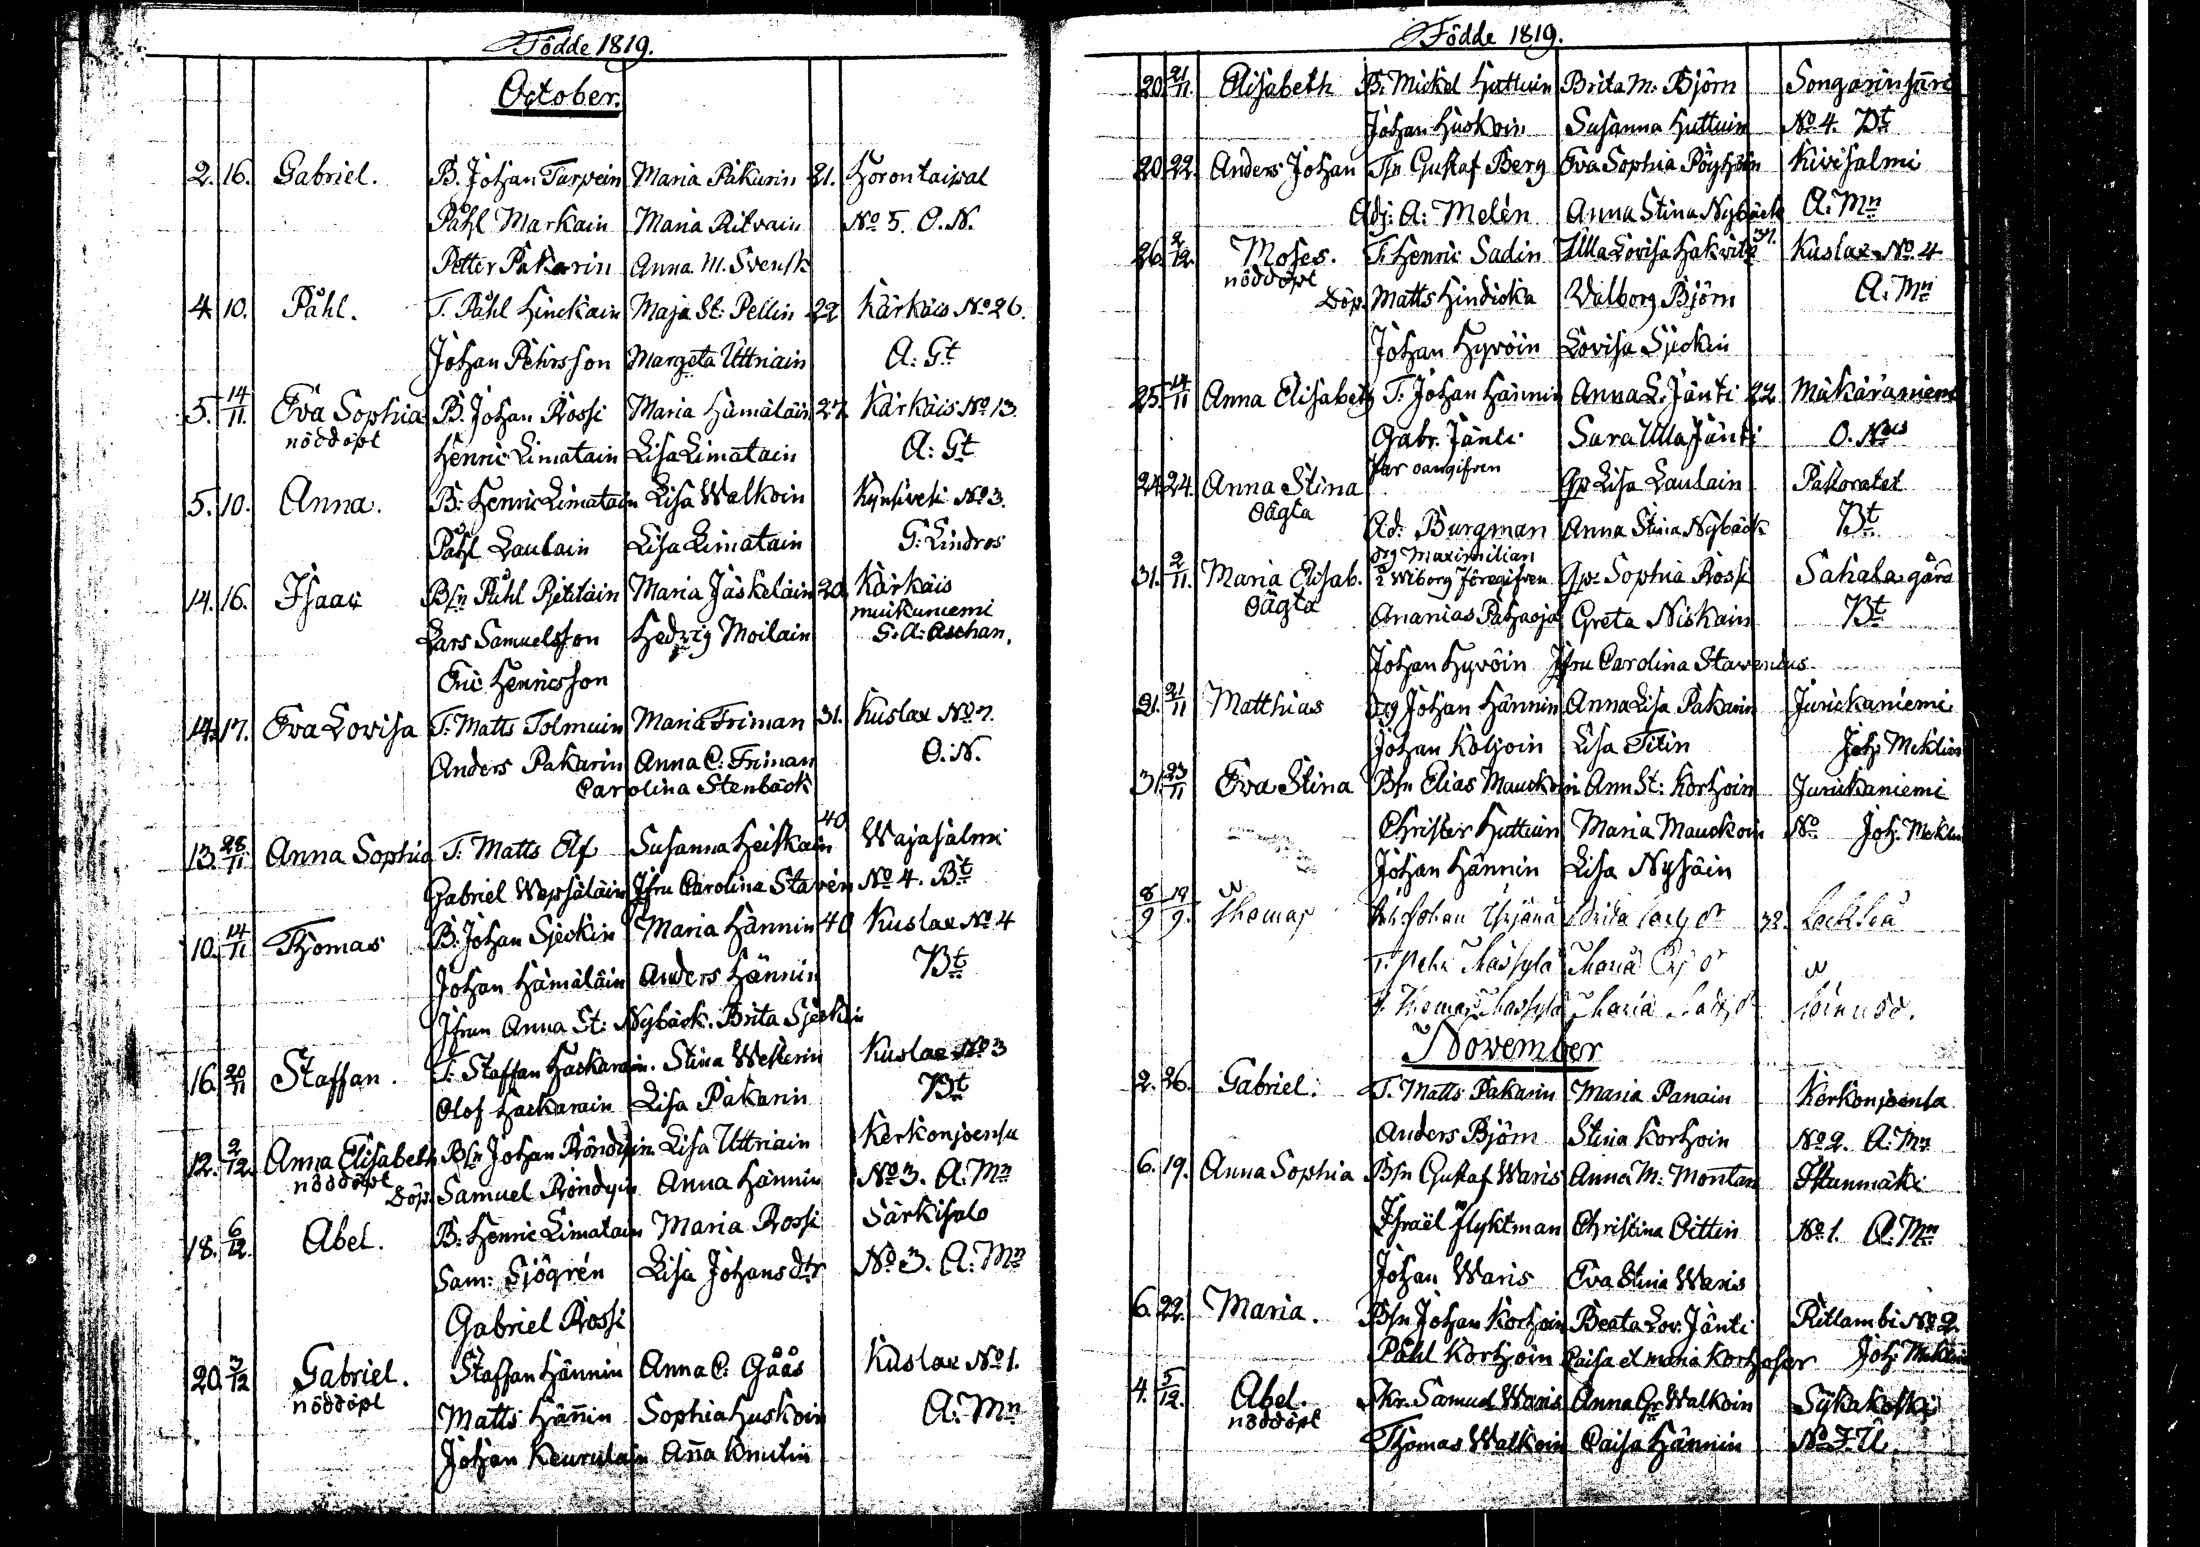 Födde 1819.
October.
2. 16. Gabriel. B. Johan Turvein Maria Pakarin 21. Horontaival
Påhl Markain Maria Ritvain No 5. O. N.
Petter Pakarin Anna M. Svensk
4 10. Påhl. T. Påhl Hinckain Maja St: Pellin 22 Kärkäis No 26.
Johan Pehrsson Margeta Uttriain A: Gt
5. 14/11. Eva Sophia B. Johan Rossi Maria Hämäläin 27 Kärkäis No 13
nöddöpt Henric Limatain Lisa Limatain A: Gt
5. 10. Anna. B: Henric Limatain Lisa Walkoin Kynsivesi No 3.
Påhl Laulain Lisa Limatain G: Lindros
14. 16. Isaac Bsn Påhl Pietiläin Maria Jäskeläin 20 Kärkäis
muikuniemi
Lars Samuelsson Hedvig Moilain G. A: Aschan.
Eric Henricsson
14. 17. Eva Lovisa T: Matts Tolmuin Maria Friman 31. Kuslax No 7.
Anders Pakarin Anna C: Friman O. N.
Carolina Stenbäck
13. 28/11 Anna Sophia T: Matts Alf Susanna Heiskain 40 Wajasalmi
Gabriel Wepsäläin Jfru Carolina Stavén No 4. Bt
10. 14/11 Thomas B: Johan Sjeckin Maria Hännin 40 Kuslax No 4
Johan Hämäläin Anders Hännin Bt
Jfrun Anna St: Nybäck. Brita Sjeckin
16. 20/11 Staffan. T: Staffan Hackarain. Stina Westerin Kuslax No 3
Olof Hackarain Lisa Pakarin Bt
12. 2/12. Anna Elisabeth Bsn Johan Röndyin Lisa Uttriain Kerkonjoensu
nöddöpt Döp. Samuel Röndyin Anna Hännin No 3. A: Mn
18. 6/12. Abel. B: Henric Limatain Maria Rossi Särkisalo
Sam: Sjögrén Lisa Johansdtr No 3. A: Mn
Gabriel Rossi
20. 3/12 Gabriel. Staffan Hännin Anna C. Gåås Kuslax No 1.
nöddöpt Matts Hännin Sophia Huskoin A: Mn
Johan Keurulain Anna Knutin
Födde 1819.
20. 21/11. Elisabeth B: Mickel Huttuin Brita M. Björn Songarinsari
Johan Huskoin Susanna Huttuin No 4. Bt
20 22. Anders Johan Tsn Gustaf Berg Eva Sophia Pöyhöin Kivisalmi
Adj: A: Melén Anna Stina Nybäck A: Mn
26. 2/12. Moses. T. Henric Sadin Ulla Lovisa Hakvitz 37. Kuslax No 4
nöddöpt Döp. Matts Hindicka Walborg Björn A: Mn
Johan Hyvöin Lovisa Sjeckin
25. 14/11 Anna Elisabeth T. Johan Hännin Anna L. Jänti 22. Mäkäräniemi
Gabr. Jänti Sara Ulla Jänti O. Nus
24. 24. Anna Stina far oangifven Gp Lisa Laulain Pastoratet
oägta Ad: Burgman Anna Stina Nybäck Bt
31. 2/11. Maria Elisab. drg Maximilian
i Wiborg föregifven Gp: Sophia Rossi Sahala gård
oägta Ananias Pahaoja Greta Niskain Bt
Johan Hyvöin Jfru Carolina Stavenius
21. 21/11 Matthias Drg Johan Hännin Anna Lisa Pakarin Jurickaniemi
Johan Koljoin Lisa Titin Joh: Meklin
31. 23/11 Eva Stina Bsn Elias Mauckoin Ann St: Korhoin Jurickaniemi
Christer Huttuin Maria Mauckoin No Joh: Meklin
Johan Hännin Lisa Nyhäin
8/9 19/9. Thomas Johan 32.
Maria
Thomas Maria
November
2. 26. Gabriel. T. Matts Pakarin Maria Panain Kerkonjoensu
Anders Björn Stina Korhoin No 2. A: Mn
6. 19. Anna Sophia Bsn Gustaf Waris Anna M: Montan Istunmäki
Israël Flyktman Christina Oittin No 1. A: Mn
Johan Waris Eva Stina Waris
6. 22. Maria. Bsn Johan Korhoin Beata Lov. Jänti Ritlambi No 2
Påhl Korhoin Caisa et maria Korhoser Joh: Meklin
4. 5/12. Abel. Skr. Samuel Waris Anna Gr Walkoin Sykäkoski
nöddöpt Thomas Walkoin Caisa Hännin No